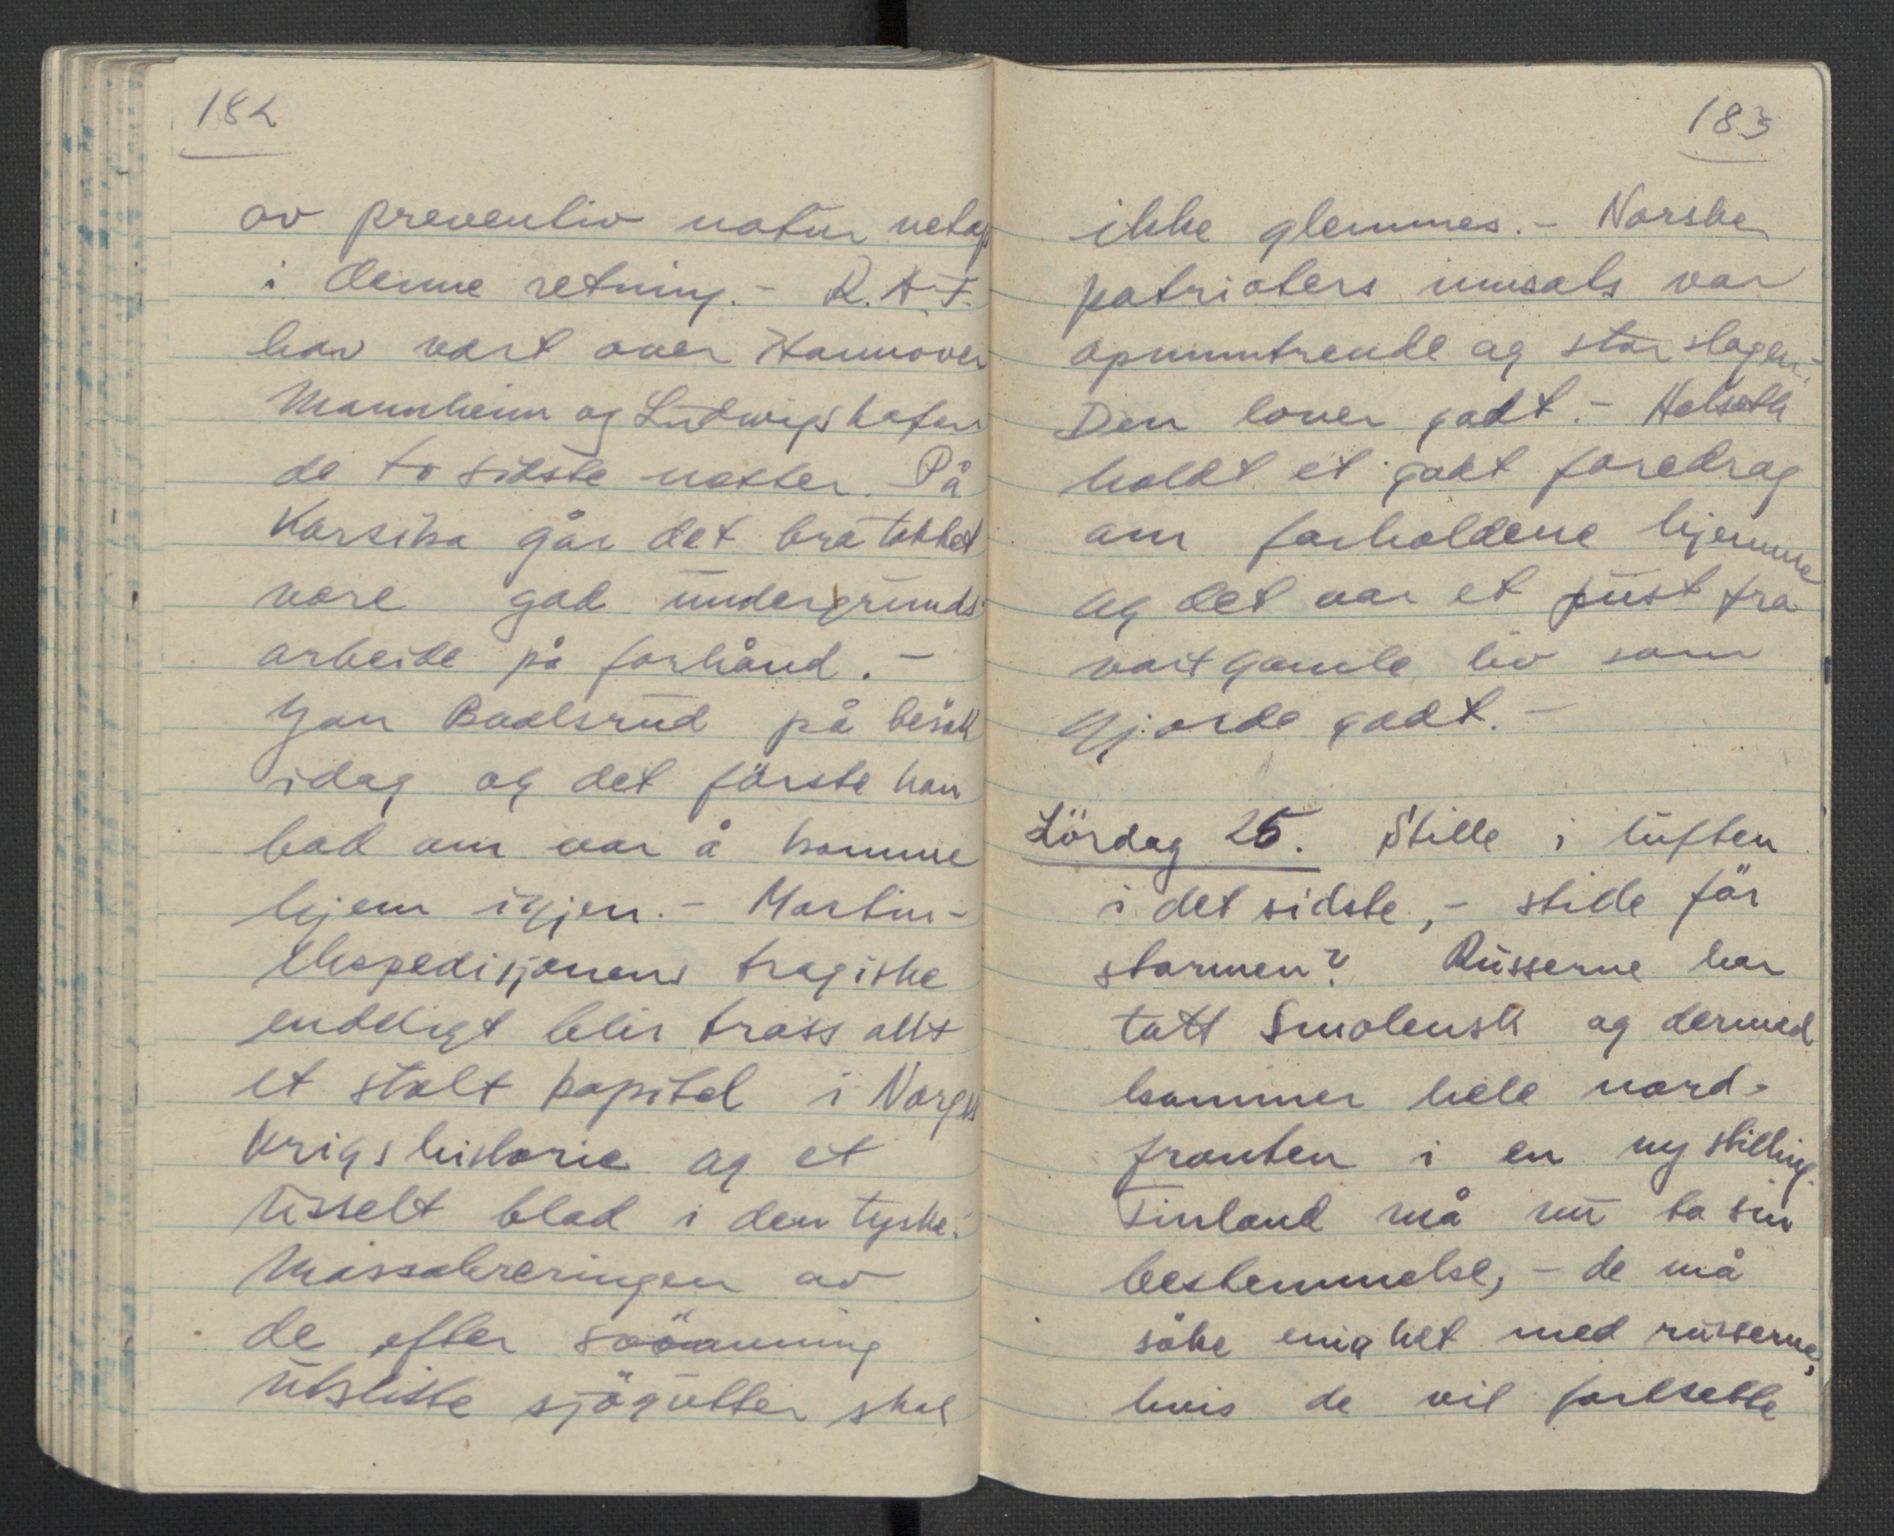 182
av preventiv natur netop
i denne retning. - R.A.F.
har vært over Hannover
Mannheim og Ludwigshafen
de to sidste netter. På
Korsika går det bra takket
være god undergrunds-
arbeide på forhånd. -
Jan Baalsrud på besök
idag og det förste han
bad om var å komme
hjem igjen. - Martin-
ekspedisjonens tragiske
endeligt blir trass alt
et stolt kapitel i Norges
krigshistorie og et
usselt blad i den tyske.
Massakreringen av
de efter svömning
utslitte sjögutter skal
183
ikke glemmes. - Norske
patrioters innsats var
opmuntrende og storslagen.
Den lover godt. - Halseth
holdt et godt foredrag
om forholdene hjemme
og det var et pust fra
vort gamle liv som
gjorde godt. -
Lördag 25. Stille i luften
i det sidste, - stille för
stormen? Russerne har
tatt Smolensk og dermed
kommer hele nord-
fronten i en ny stilling.
Finland må nu ta sin
bestemmelse, - de må
söke enighet med russerne,
hvis de vil fortsette